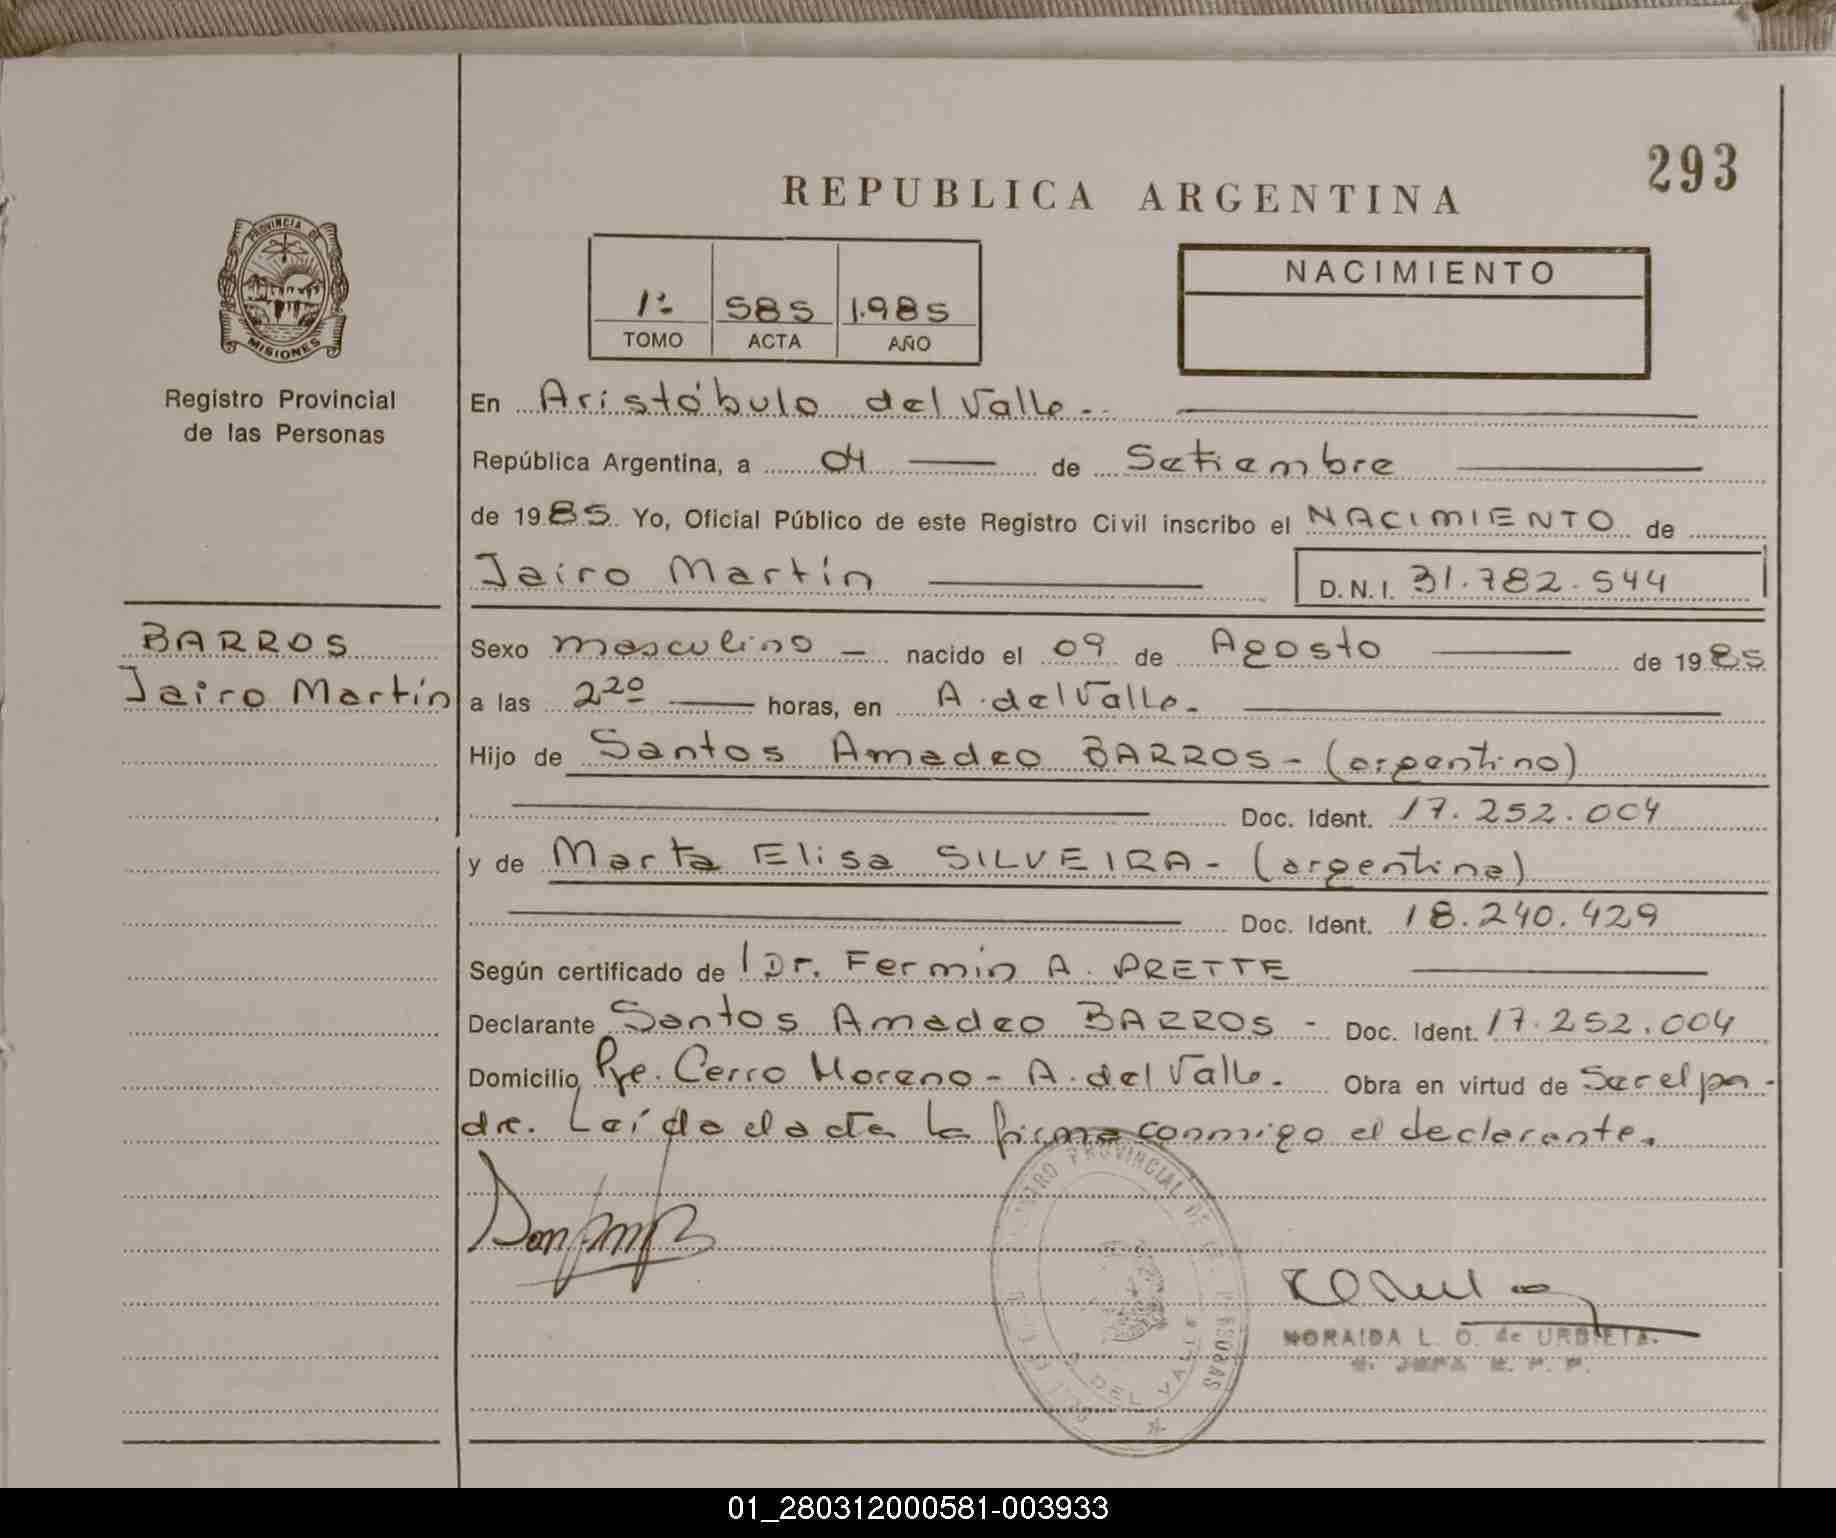 293
REPUBLICA ARGENTINA
PROVINCIA DE
MISIONES
Registro Provincial
de las Personas
1º 585 1.985
TOMO ACTA AÑO
NACIMIENTO
En Aristóbulo del Valle.-
República Argentina, a 04 de Setiembre
de 1985. Yo, Oficial Público de este Registro Civil inscribo el NACIMIENTO de
Jairo Martín
D.N.I. 31.782.544
BARROS
Jairo Martín
Sexo masculino - nacido el 09 de Agosto de 1985
a las 2²⁰ horas, en A. del Valle.
Hijo de Santos Amadeo BARROS - (argentino)
Doc. Ident. 17.252.004
y de Marta Elisa SILVEIRA - (argentina)
Doc. Ident. 18.240.429
Según certificado de Dr. Fermín A. PRETTE
Declarante Santos Amadeo BARROS - Doc. Ident. 17.252.004
Domicilio Pje. Cerro Moreno - A. del Valle. Obra en virtud de Ser el pa-
dre. Leída el acta la firma conmigo el declarante.
PROVINCIAL DE
DEL VALLE
NORAIDA L. O. de URBIETA
01_280312000581-003933